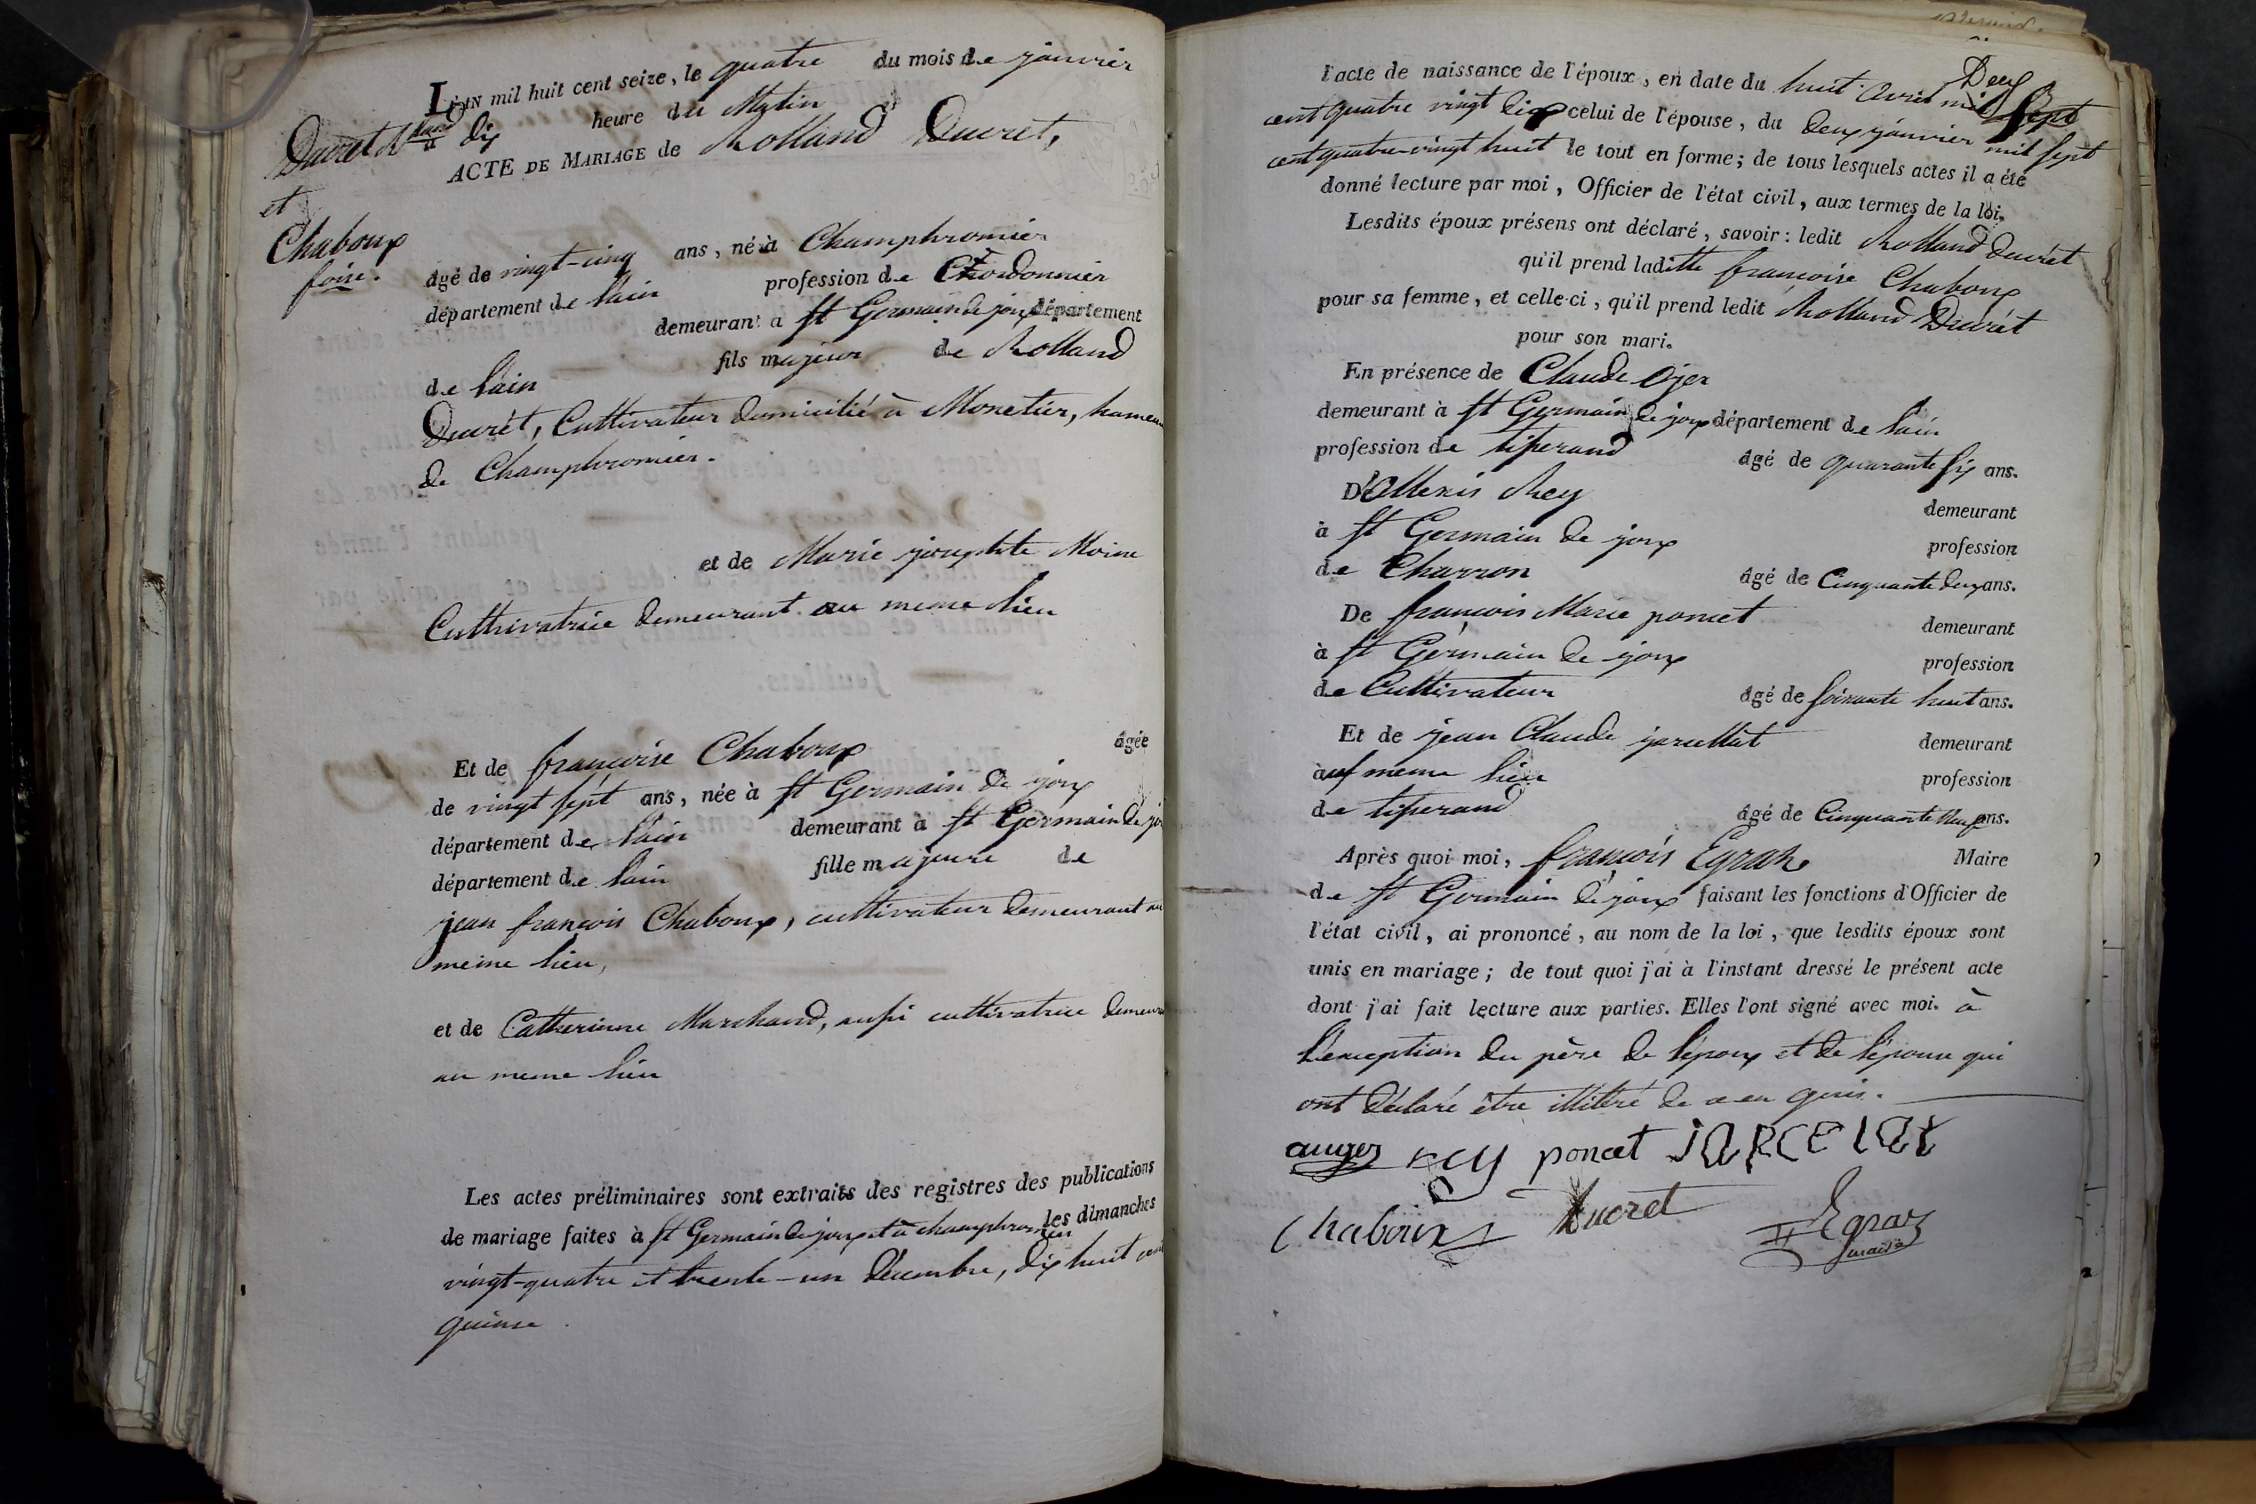 L'AN mil huit cent seize, le quatre du mois de janvier
dix heure du Matin
ACTE DE MARIAGE de Rolland Ducret,
Ducret Rland
et
Chaboux
foise.
âgé de vingt-cinq ans, né à Champhromier
département de l'ain profession de Cordonnier
demeurant à st Germain de joux département
de l'ain fils majeur de Rolland
Ducrét, Cultivateur domicilié à Monetier, hameau
de Champhromier.
et de Marie josephte Moine
Cultivatrice demeurant au meme lieu
Et de francoise Chaboux âgée
de vingt sept ans, née à st Germain de joux
département de l'ain demeurant à st Germain de jo
département de l'ain fille majeure de
jean francois Chaboux, cultivateur demeurant au
meme lieu,
et de Catherinne Marchand, aussi cultivatrice demeura
au meme lieu
Les actes préliminaires sont extraits des registres des publications
de mariage faites à st Germain de joux et à champhromier les dimanches
vingt-quatre et trente-un décembre, dix huit cent
quinse
l'acte de naissance de l'époux, en date du huit avril mil sept
cent quatre vingt dix celui de l'épouse, du deux janvier mil sept
cent quatre-vingt huit le tout en forme; de tous lesquels actes il a été
donné lecture par moi, Officier de l'état civil, aux termes de la loi.
Lesdits époux présens ont déclaré, savoir: ledit Rolland Ducrét
qu'il prend laditte francoise Chaboux
pour sa femme, et celle-ci, qu'il prend ledit Rolland Ducrét
pour son mari.
En présence de Claude Ojer
demeurant à st Germain de joux département de l'ain
profession de tisserand âgé de quarante six ans.
D'Allexis Rey demeurant
à st Germain de joux profession
de Charron âgé de Cinquante deux ans.
De francois Marie poncet demeurant
à st Germain de joux profession
de Cultivateur âgé de soixante huit ans.
Et de jean Claude jarcellat demeurant
au meme lieu profession
de tisserand âgé de Cinquante neuf ans.
Après quoi moi, francois Egraz Maire
de st Germain de joux faisant les fonctions d'Officier de
l'état civil, ai prononcé, au nom de la loi, que lesdits époux sont
unis en mariage; de tout quoi j'ai à l'instant dressé le présent acte
dont j'ai fait lecture aux parties. Elles l'ont signé avec moi. à
l'exception du père de l'époux et de l'épouse qui
ont déclaré être illitéré de ce en quis.
auger rey poncet JARCELAT
Chaboux Ducret Egraz
maire